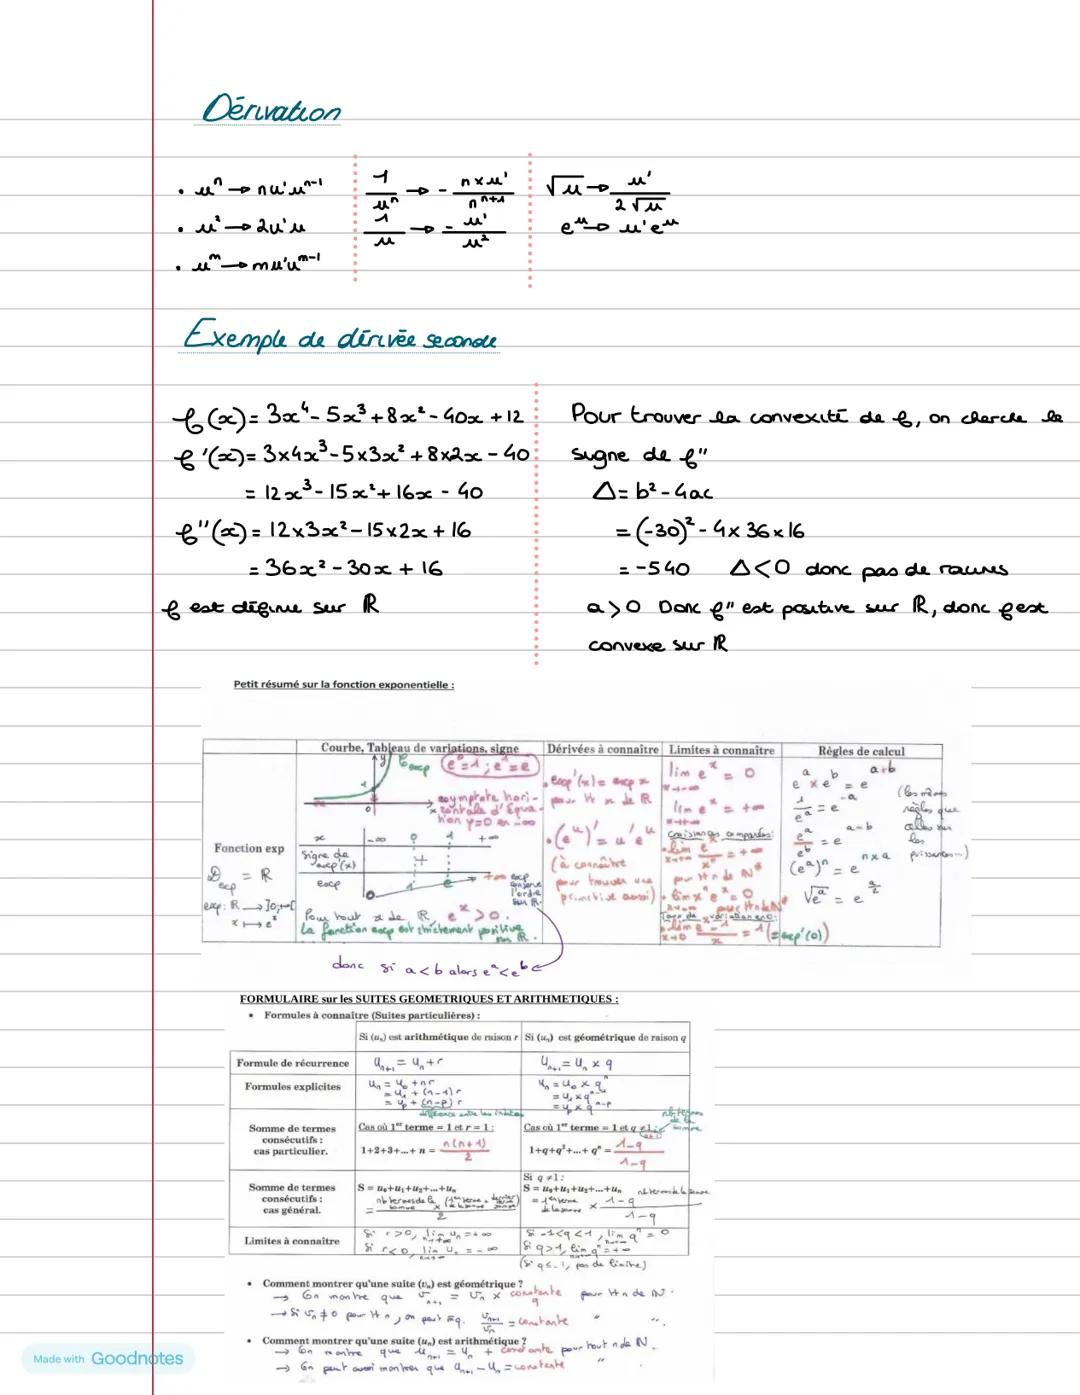 Dérivation
• uⁿ → nu'uⁿ⁻¹
• u² → 2u'u
• uᵐ → mu'uᵐ⁻¹
1/uⁿ → - n×u'/nⁿ⁺¹
1/u → - u'/u²
√u → u'/2√u
eᵘ → u'eᵘ
Exemple de dérivée seconde
f(x) = 3x⁴ - 5x³ + 8x² - 40x + 12
f'(x) = 3×4x³ - 5×3x² + 8×2x - 40
= 12x³ - 15x² + 16x - 40
f''(x) = 12×3x² - 15×2x + 16
= 36x² - 30x + 16
f est définie sur ℝ
Pour trouver la convexité de f, on cherche le
signe de f''
Δ = b² - 4ac
= (-30)² - 4×36×16
= -540 Δ<0 donc pas de racines
a>0 Donc f'' est positive sur ℝ, donc f est
convexe sur ℝ
Petit résumé sur la fonction exponentielle :
Courbe, Tableau de variations, signe
Dérivées à connaître
Limites à connaître
Règles de calcul
Fonction exp
D exp = ℝ
exp: ℝ → ]0;+∞[
x ↦ eˣ
C exp
e⁰=1 ; e¹=e
asymptote hori-
zontale d'équa-
tion y=0 en -∞
x -∞ 0 1 +∞
Signe de exp(x) +
exp 0 1 e +∞
exp conserve l'ordre sur ℝ.
Pour tout x de ℝ, eˣ > 0.
La fonction exp est strictement positive sur ℝ.
donc si a<b alors eᵃ<eᵇ
• exp'(x) = exp x
pour ∀ x de ℝ
• (eᵘ)' = u'eᵘ
(à connaître
pour trouver une
primitive aussi)
lim eˣ = 0
x→-∞
lim eˣ = +∞
x→+∞
Croissances comparées:
• lim eˣ/xⁿ = +∞
x→+∞
pour ∀ n de ℕ*
• lim xⁿeˣ = 0
x→-∞ pour ∀ n de ℕ
Taux de variation en 0:
• lim eˣ-1/x = 1 (=exp'(0))
x→0
eᵃ × eᵇ = eᵃ⁺ᵇ
1/eᵃ = e⁻ᵃ
eᵃ/eᵇ = eᵃ⁻ᵇ
(eᵃ)ⁿ = eⁿˣᵃ
√eᵃ = e^(a/2)
(les mêmes
règles que
celles sur
les
puissances...)
FORMULAIRE sur les SUITES GEOMETRIQUES ET ARITHMETIQUES :
• Formules à connaître (Suites particulières) :
Si (uₙ) est arithmétique de raison r
Si (uₙ) est géométrique de raison q
Formule de récurrence
uₙ₊₁ = uₙ + r
uₙ₊₁ = uₙ × q
Formules explicites
uₙ = u₀ + nr
= u₁ + (n-1)r
= uₚ + (n-p)r
différence entre les indices
uₙ = u₀ × qⁿ
= u₁ × qⁿ⁻¹
= uₚ × qⁿ⁻ᵖ
Somme de termes
consécutifs :
cas particulier.
Cas où 1ᵉʳ terme = 1 et r = 1 :
1+2+3+...+ n = n(n+1)/2
Cas où 1ᵉʳ terme = 1 et q ≠1 :
nb termes de la somme
1+q+q²+...+ qⁿ = 1-q/1-q
Somme de termes
consécutifs :
cas général.
S = u₀+u₁+u₂+...+uₙ
= nb termes de la somme × (1ᵉʳ terme de la somme + dernier terme somme)/2
Si q ≠1 :
S = u₀+u₁+u₂+...+uₙ
nb termes de la somme
= 1ᵉʳ terme de la somme × 1-q/1-q
Limites à connaître
Si r>0, lim uₙ = +∞
n→+∞
Si r<0, lim uₙ = -∞
n→+∞
Si -1<q<1, lim qⁿ = 0
Si q>1, lim qⁿ = +∞
(Si q≤-1, pas de limite)
• Comment montrer qu'une suite (vₙ) est géométrique ?
→ On montre que vₙ₊₁ = vₙ × constante q pour ∀ n de ℕ.
→ Si vₙ ≠ 0 pour ∀ n, on peut mq. vₙ₊₁/vₙ = constante " ".
• Comment montrer qu'une suite (uₙ) est arithmétique ?
→ On montre que uₙ₊₁ = uₙ + constante pour tout n de ℕ.
→ On peut aussi montrer que uₙ₊₁ - uₙ = constante "
Made with Goodnotes